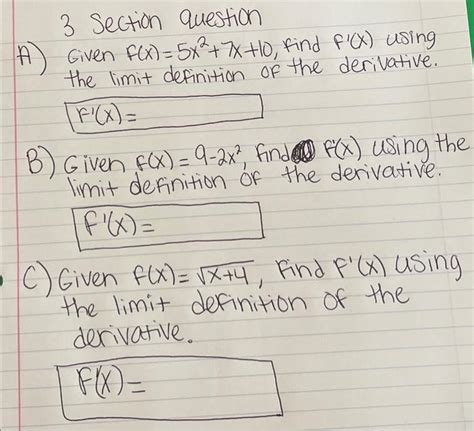 3 Section question
A) Given f(x) = 5x²+7x+10, find f'(x) using
the limit definition of the derivative.
f'(x)=
B) Given f(x) = 9-2x², find f(x) using the
limit definition of the derivative.
f'(x)=
C) Given f(x)= √x+4, Find f'(x) using
the limit definition of the
derivative.
f(x)=